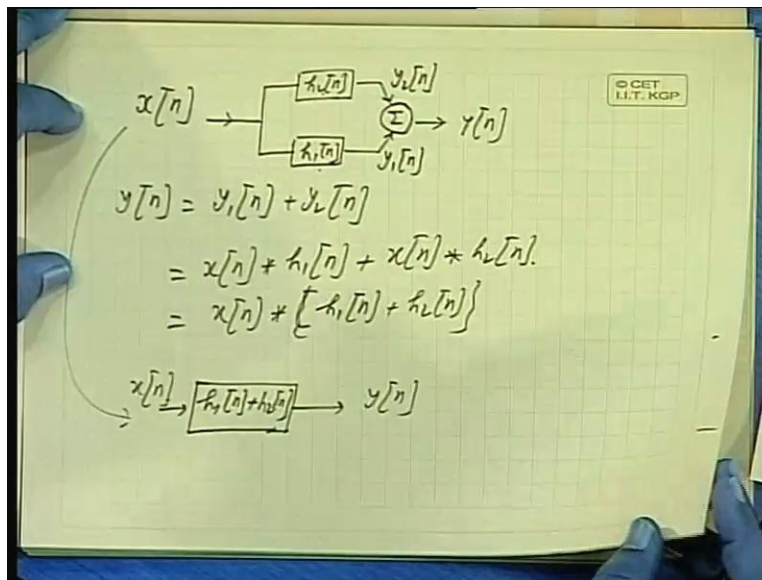 © CET
I.I.T. KGP
x[n] → h₂[n] y₂[n]
Σ → y[n]
h₁[n] y₁[n]
y[n] = y₁[n] + y₂[n]
= x[n] * h₁[n] + x[n] * h₂[n].
= x[n] * {h₁[n] + h₂[n]}
x[n] → h₁[n]+h₂[n] → y[n]